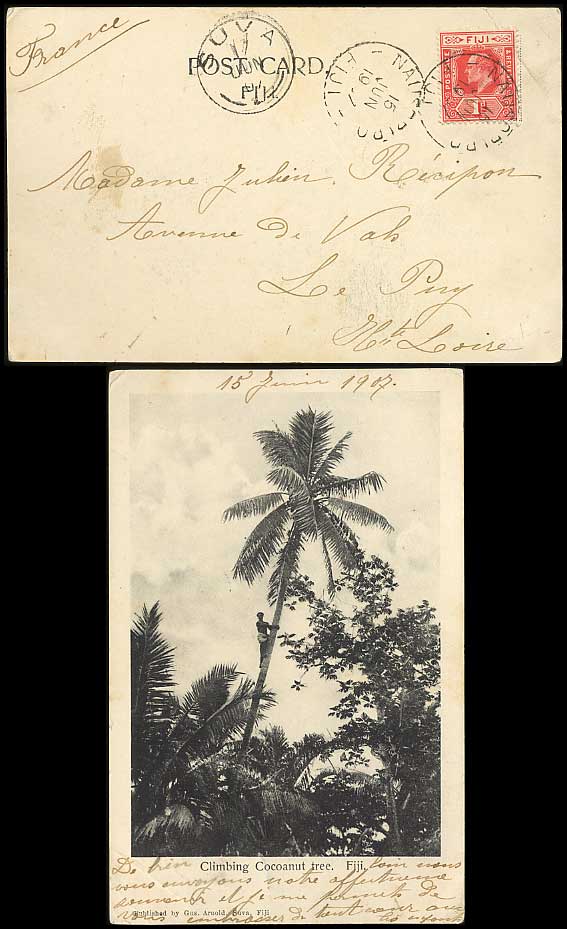 France
POST CARD
SUVA
17
JUN
FIJI
NAI
15
JUN
FIJI
FIJI
POSTAGE
Madame Julien Récipon
Avenue de Vals
Le Puy
Hte Loire
15 Juin 1907.
Climbing Cocoanut tree. Fiji.
De bien loin nous
vous envoyons notre affectueux
souvenir et je me permets de
vous embrasser de tout cœur
Published by Gus. Arnold, Suva, Fiji